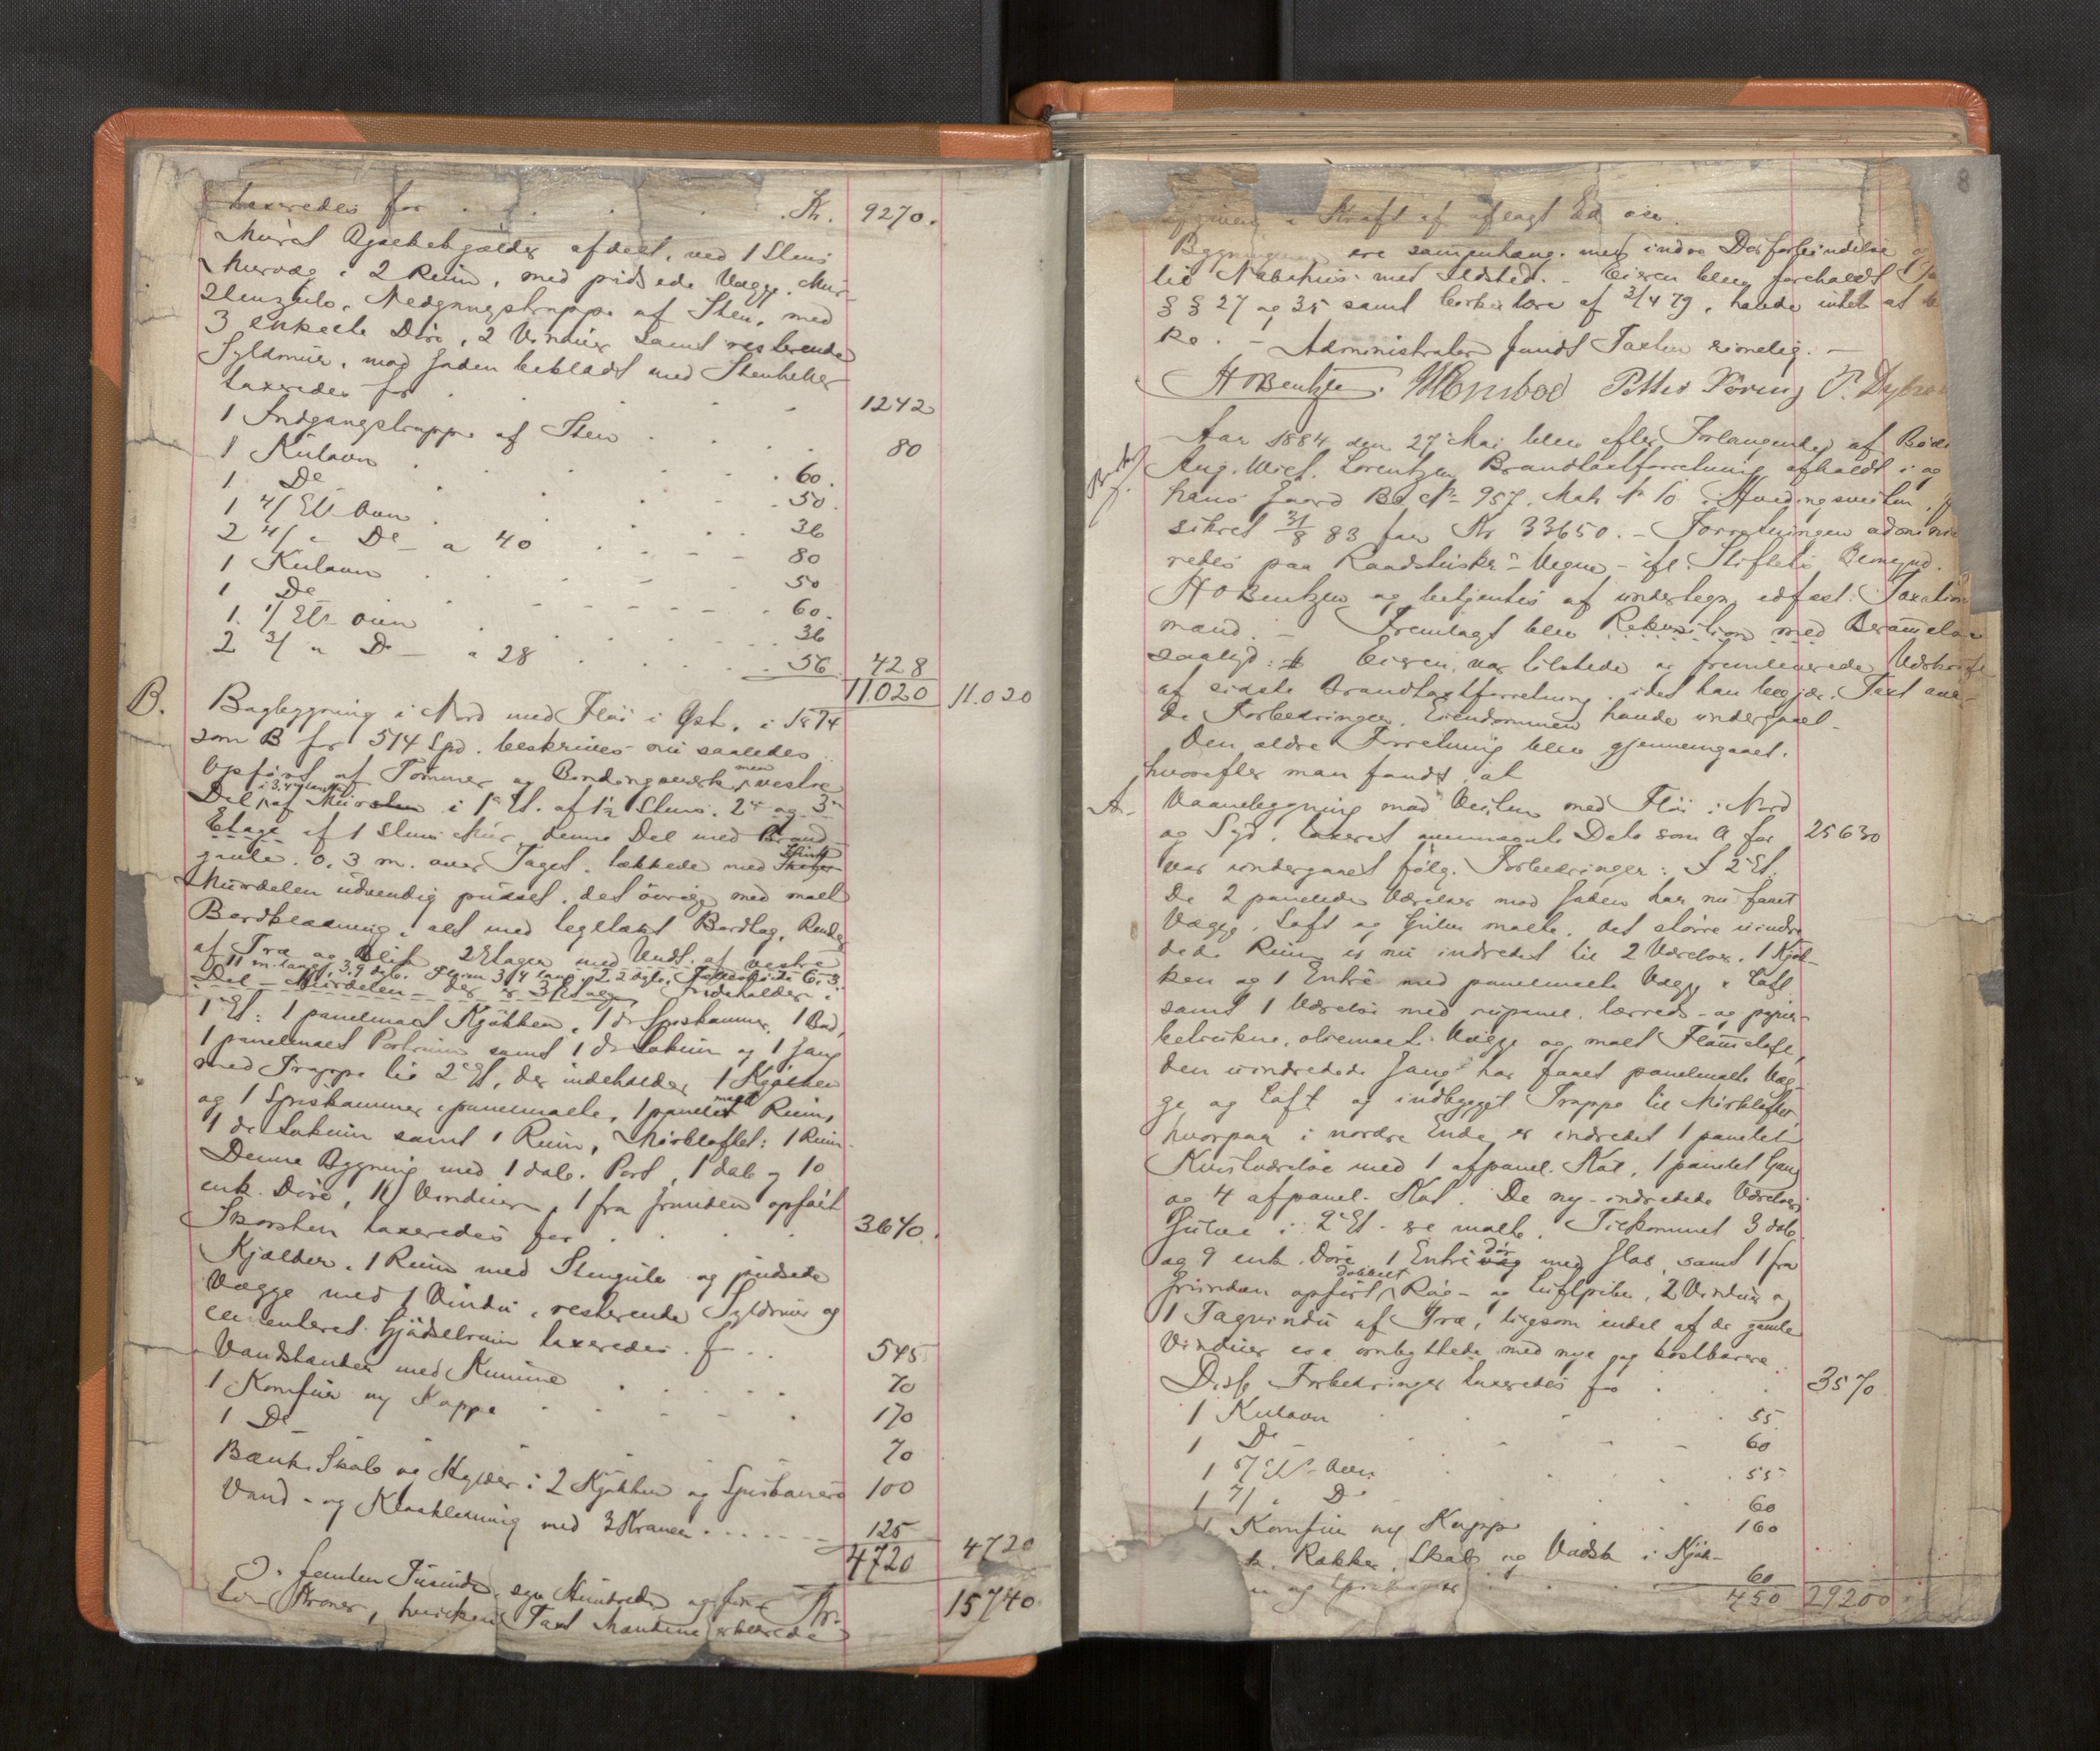 taxeredes for . . . . . Kr. 9270.
Muret Gjæstekjælder afdelt, ved 1 Stens
Murvæg i 2 Rum, med pudsede Vægge, Mur-
stengulv. Nedgangstrappe af Sten, med
3 enkelte Döre, 2 Vinduer samt resterende
Syldmur, mod Gaden beklædt med Stenheller
taxeredes for . . . 1242
1 Indgangstrappe af Sten . . . 80
1 Kulovn . . . 60.
1 Do . . . 50.
1 4/ Et. Ovn . . . 36
2 4/ " Do - a 40 . . . 80
1 Kulovn . . . 50
1 Do . . . 60.
1. 1/ Et. Ovn . . . 36
2 3/ " Do - a 28 . . . 56 428
11.020 11.020
B. Bagbygning i Nord med Flöi i Öst, i 1874
som B for 514 Spd. beskrives nu saaledes
Opfört af Tömmer og Bindingsværk, men vestre
Del af Mursten i 1ste Et. af 1½ Stens. 2den og 3die
Etage af 1 Stens Mur, denne Del med Brand-
gavle. 0,3 m. over Taget, tækkede med Skifer
Murdelen udvendig pudset, det övrige med malt
Bordklædning, alt med tegllagt Bordtag, Render
af Træ og Blik 2 Etager med Undt. af vestre
11 m. lang, 3,9 dyb. Flöien 3,4 lang, 2,2 dyb,
Del - Murdelen - der er 3 Etager, Indeholder i
1ste Et: 1 panelmalt Kjökken, 1 do Spiskammer, 1 Bod,
1 panelmalt Portrum samt 1 do Lokum og 1 Gang
med Trappe til 2den Et, der indeholder 1 Kjökken
og 1 Spiskammer, panelmalte, 1 panelmalt Rum,
1 do Lokum samt 1 Rum, Mörkloftet: 1 Rum
Denne Bygning med 1 dob. Port, 1 dob. og 10
enk. Döre, 11 Vinduer, 1 fra Grunden opfört
Skorsten taxeredes for . . . 3640.
Kjælder, 1 Rum med Stengulv og pudsede
Vægge med 1 Vindu, resterende Syldmur og
cementeret Gjödselrum taxeredes f. . . 545
Vandstander med Kumme . . . 70
1 Komfur og Kappe . . . 170
1 Do . . . 70
Bænk, Skab og Hylder i 2 Kjökken og Spiskamre 100
Vand- og Kloakledning med 3 Kraner . . . 125
4720 4720
femten Tusinde, syv Hundrede og forr- Kr. 15740
ti Kroner, hvilken Taxt Mændene erklærede
8
afgiven i Kraft af aflagt Ed
Bygningerne ere sammenhæng. med indre Dörforbindelse
til Nabohus med Ildsted. - Eieren blev foreholdt
§ § 27 og 35 samt Cirkulære af 3/4 79, havde intet at
ke. - Administrator fandt Taxten rimelig. -
H O Bentzen. Petter P. Dybvad
Aar 1884 den 27 Mai blev efter Forlangende af
Aug. Wilh. Lorentzen Brandtaxtforretning afholdt i og
hans Gaard Bd No 957. Mat. No 10
sikret 31/8 83 for Kr 33650. - Forretningen admini
redes paa Raadstueskr's Vegne - ifl. Stiftets Bemynd.
H O Bentzen og betjentes af undertegn. edfæst. Taxations
mænd. - Fremlagt blev Rekvisition med Berammelse
saalyd: Eieren var tilstede og fremleverede Udskrift
af sidste Brandtaxtforretning, idet han begjær. Taxt over
de Forbedringer, Eiendommen havde undergaaet.
Den ældre Forretning blev gjennemgaaet,
hvorefter man fandt, at
A. Vaanebygning mod Veiten med Flöi i Nord
og Syd, taxeret ovennævnte Dato som A for 25630
var undergaaet fölg. Forbedringer: I 2den Et.
De 2 panelede Værelser mod Gaden har nu faaet
Vægge, Loft og Gulve malte, det större uindre
dede Rum er nu indredet til 2 Værelser, 1 Kjök-
ken og 1 Entré med panelmalte Vægge & Loft
samt 1 Værelse med rupanel, lærreds- og papir-
betrukne, oliemalte Vægge og malt Flammeloft,
den uindredede Gang har faaet panelmalte Væg-
ge og Loft og indbygget Trappe til Mörkloftet,
hvorpaa i nordre Ende er indredet 1 panelet
Kvistværelse med 1 afpanel. Kot, 1 panelet Gang
og 4 afpanel. Kot. De ny-indredede Værelsers
Gulve i 2den Et. ere malte. Tilkommet 3 dob
og 9 enk. Döre, 1 Entrédör med Glas, samt 1 fra
Grunden opfört dobbelt Rög- og Luftpibe, 2 Vinduer og
1 Tagvindu af Træ, ligesom endel af de gamle
Vinduer ere ombyttede med nye og kostbarere.
Disse Forbedringer taxeredes for . . . 3570
1 Kulovn . . . 55
1 Do - . . . 60
1 5/ Et. Ovn . . . 55
1 7/ " Do . . . 60
1 Komfur og Kappe . . . 160
Rækker, Skab og Vadsk i Kjök-
60
450 29200